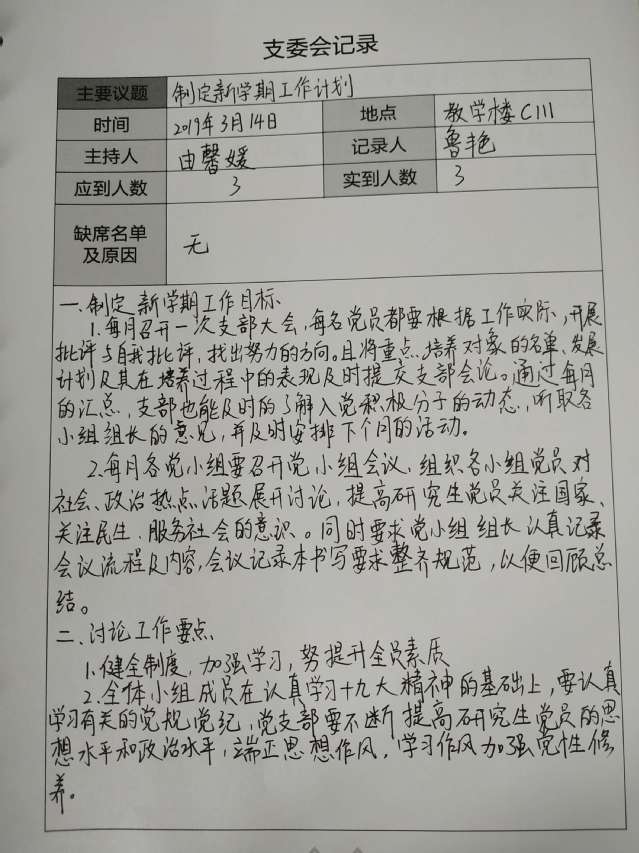 支委会记录
主要议题 制定新学期工作计划
时间 2019年3月14日 地点 教学楼C111
主持人 由馨媛 记录人 鲁艳
应到人数 3 实到人数 3
缺席名单
及原因 无
一、制定新学期工作目标
1.每月召开一次支部大会,每名党员都要根据工作实际,开展
批评与自我批评,找出努力的方向。且将重点培养对象的名单、发展
计划及其在培养过程中的表现及时提交支部会论。通过每月
的汇总,支部也能及时的了解入党积极分子的动态,听取各
小组组长的意见,并及时安排下个月的活动。
2.每月各党小组要召开党小组会议,组织各小组党员对
社会、政治热点话题展开讨论,提高研究生党员关注国家、
关注民生、服务社会的意识。同时要求党小组组长认真记录
会议流程及内容,会议记录本书写要求整齐规范,以便回顾总
结。
二、讨论工作要点
1.健全制度,加强学习,努提升全员素质
2.全体小组成员在认真学习十九大精神的基础上,要认真
学习有关的党规党纪,党支部要不断提高研究生党员的思
想水平和政治水平,端正思想作风,学习作风加强党性修
养。